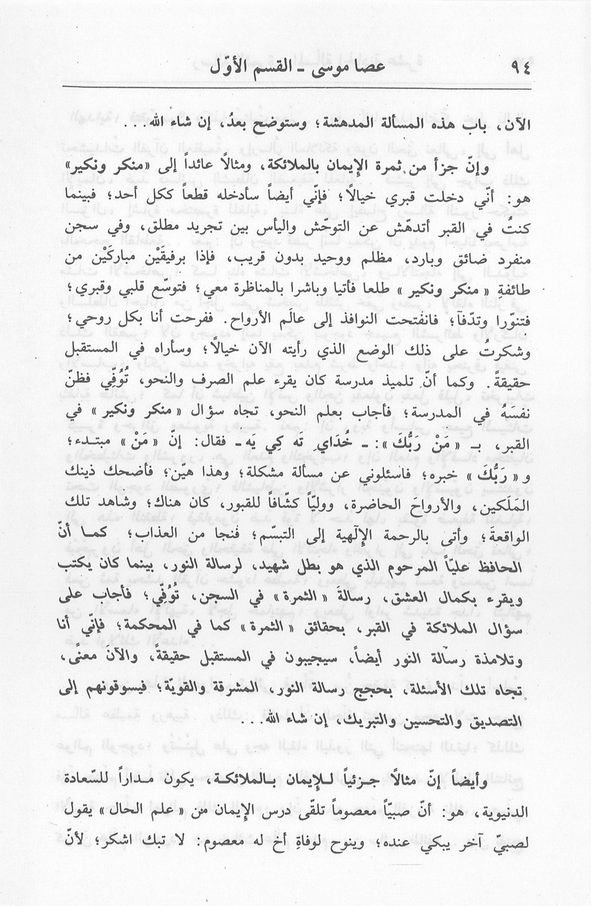 ٩٤
عصا موسى ـ القسم الأوّل
الآن، باب هذه المسألة المدهشة؛ وستوضح بعدُ، إن شاء الله...
وإنّ جزأ من ثمرة الإيمان بالملائكة، ومثالاً عائداً إلى «منكر ونكير»
هو: أنّي دخلت قبري خيالاً؛ فإنّي أيضاً سأدخله قطعاً ككل أحد؛ فبينما
كنتُ في القبر أتدهّش عن التوحّش واليأس بين تجريد مطلق، وفي سجن
منفرد ضائق وبارد، مظلم ووحيد بدون قريب، فإذا برفيقَيْن مباركَيْن من
طائفةِ «منكر ونكير» طلعا فأتيا وباشرا بالمناظرة معي؛ فتوسّع قلبي وقبري؛
فتنوّرا وتدفّآ؛ فانفتحت النوافذ إلى عالَم الأرواح. ففرحت أنا بكل روحي؛
وشكرتُ على ذلك الوضع الذي رأيته الآن خيالاً؛ وسأراه في المستقبل
حقيقةً. وكما أنّ تلميذ مدرسة كان يقرء علم الصرف والنحو، تُوُفّي فظنّ
نفسَهُ في المدرسة؛ فأجاب بعلم النحو، تجاه سؤال «منكر ونكير» في
القبر، بـ «مَنْ رَبُّكَ»: ـ خُدَاي تَه كِي يَه ـ فقال: إنّ «مَنْ» مبتدء؛
و «رَبُّكَ» خبره؛ فاسئلوني عن مسألة مشكلة؛ وهذا هيّن؛ فأضحك ذينك
المَلَكين، والأرواحَ الحاضرة، ووليّاً كشّافاً للقبور، كان هناك؛ وشاهد تلك
الواقعةَ؛ وأتى بالرحمة الإلٰهية إلى التبسّم؛ فنجا من العذاب؛ كما أنّ
الحافظ عليّاً المرحوم الذي هو بطل شهيد، لرسالة النور، بينما كان يكتب
ويقرء بكمال العشق، رسالة «الثمرة» في السجن، تُوُفّي؛ فأجاب على
سؤال الملائكة في القبر، بحقائق «الثمرة» كما في المحكمة؛ فإنّي أنا
وتلامذة رسالة النور أيضاً، سيجيبون في المستقبل حقيقةً، والآنَ معنًى،
تجاه تلك الأسئلة، بحجج رسالة النور، المشرقة والقوية؛ فيسوقونهم إلى
التصديق والتحسين والتبريك، إن شاء الله...
وأيضاً إنّ مثالاً جزئياً للإيمان بالملائكة، يكون مداراً للسّعادة
الدنيوية، هو: أنّ صبيّاً معصوماً تلقّى درس الإيمان من «علم الحال» يقول
لصبيّ آخر يبكي عنده؛ وينوح لوفاةِ أخ له معصوم: لا تبك اشكر؛ لأنّ